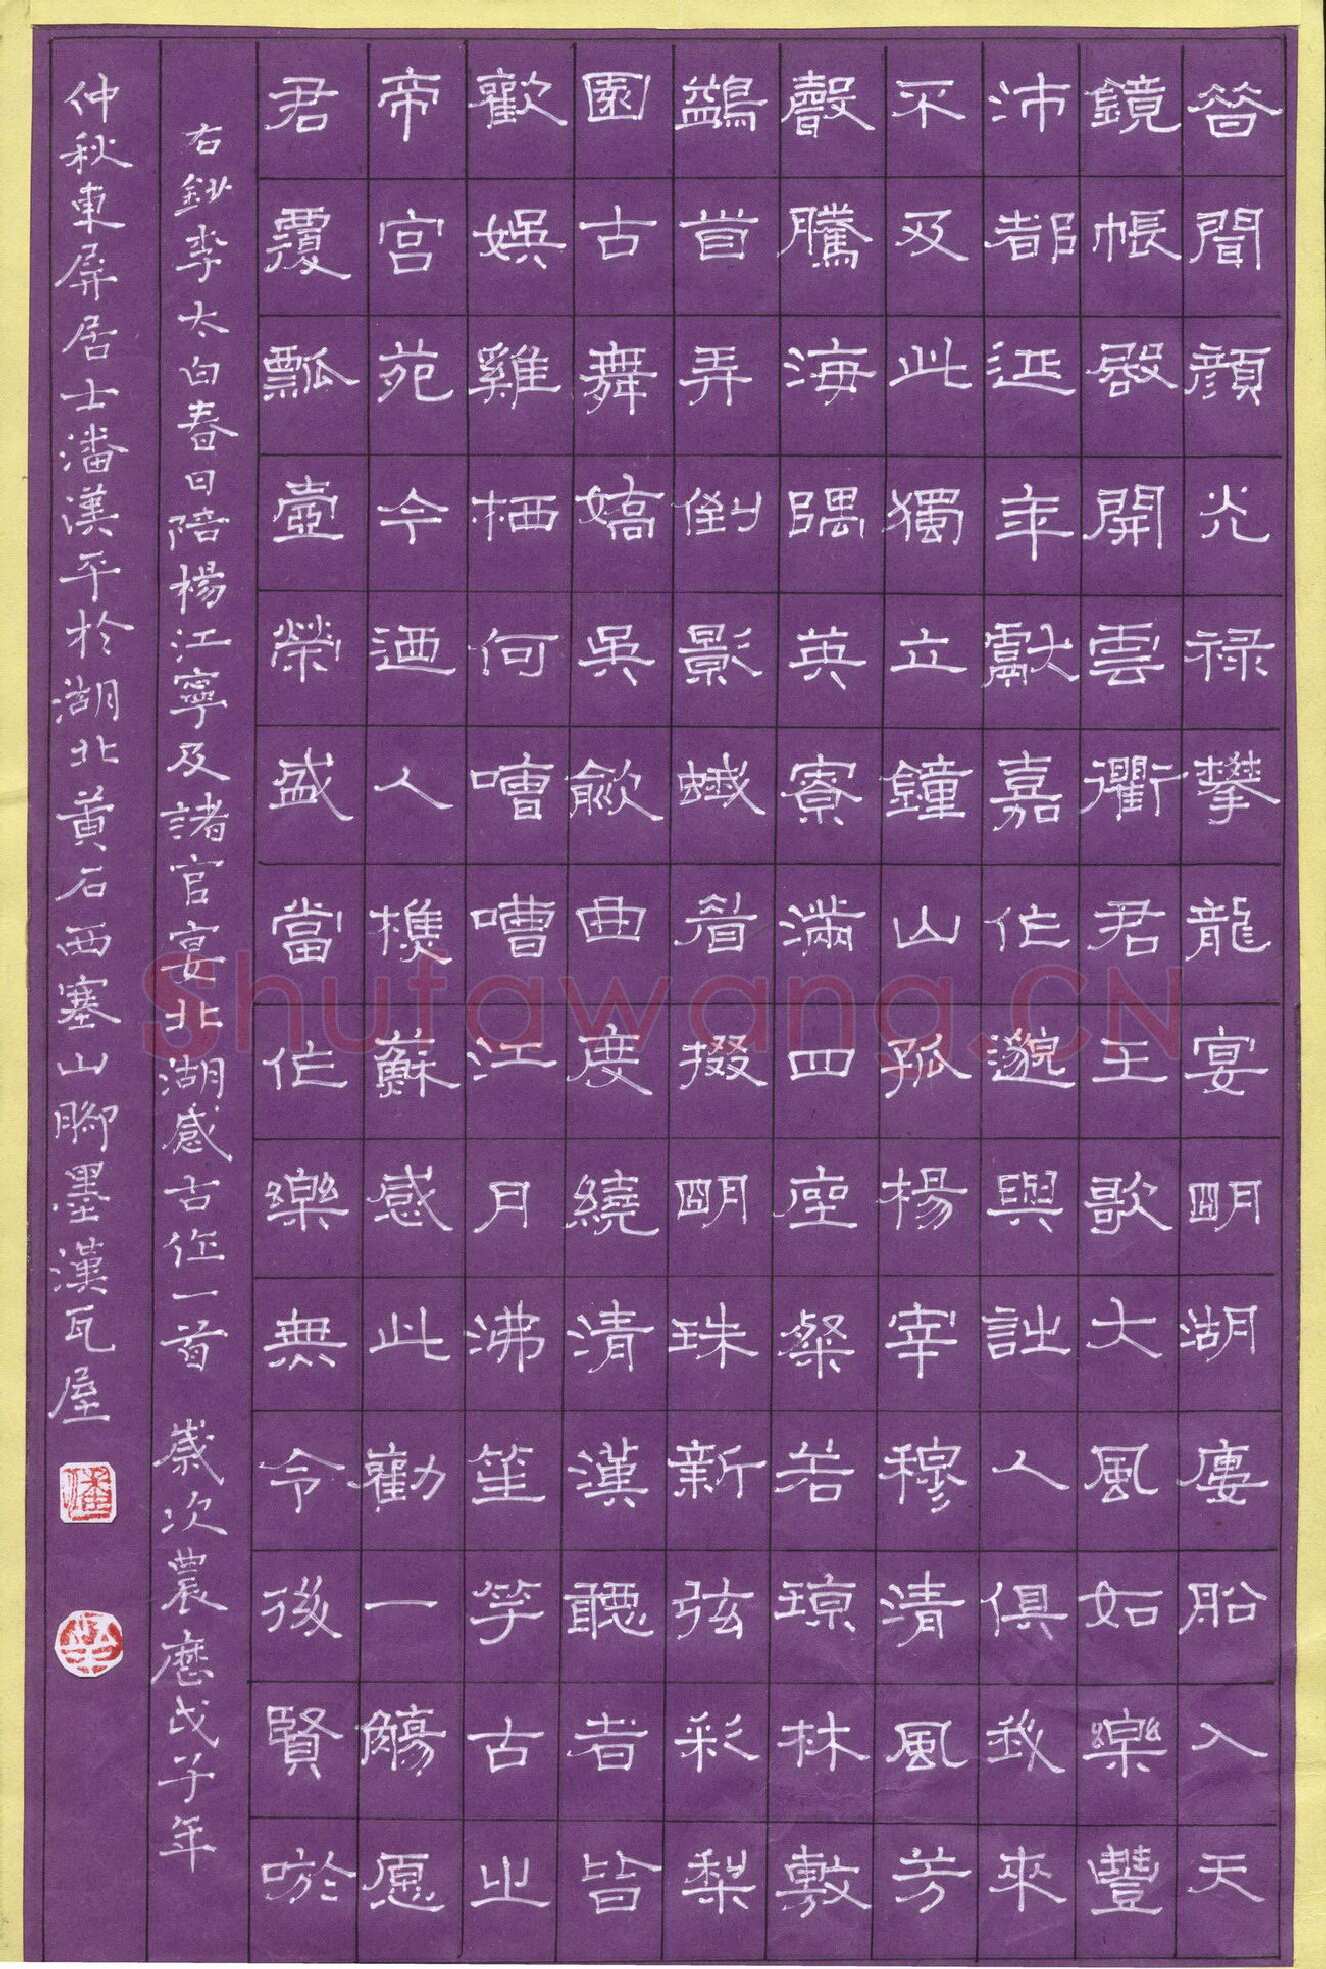 昝聞顔光禄攀龍宴明湖廔船入天
鏡帳殿開雲衢君王歌大風如樂豐
沛都延年獻嘉作邈與詩人俱我來
不及此獨立鐘山孤楊宰穆清風芳
聲騰海隅英寮滿四座粲若瓊林敷
鷁首弄倒影蛾眉掇明珠新弦彩梨
園古舞嬌吳歈曲度繞清漢聽者皆
歡娛雞栖何嘈嘈江月沸笙竽古之
帝宮苑今迺人樵蘇感此勸一觴愿
君覆瓢壺榮盛當作樂無令後賢吁
右鈔李太白春日陪楊江寧及諸官宴北湖感古作一首 歲次農曆戊子年
仲秋東屏居士潘漢平於湖北黄石西塞山腳墨漢瓦屋
潘
Shufawang.CN